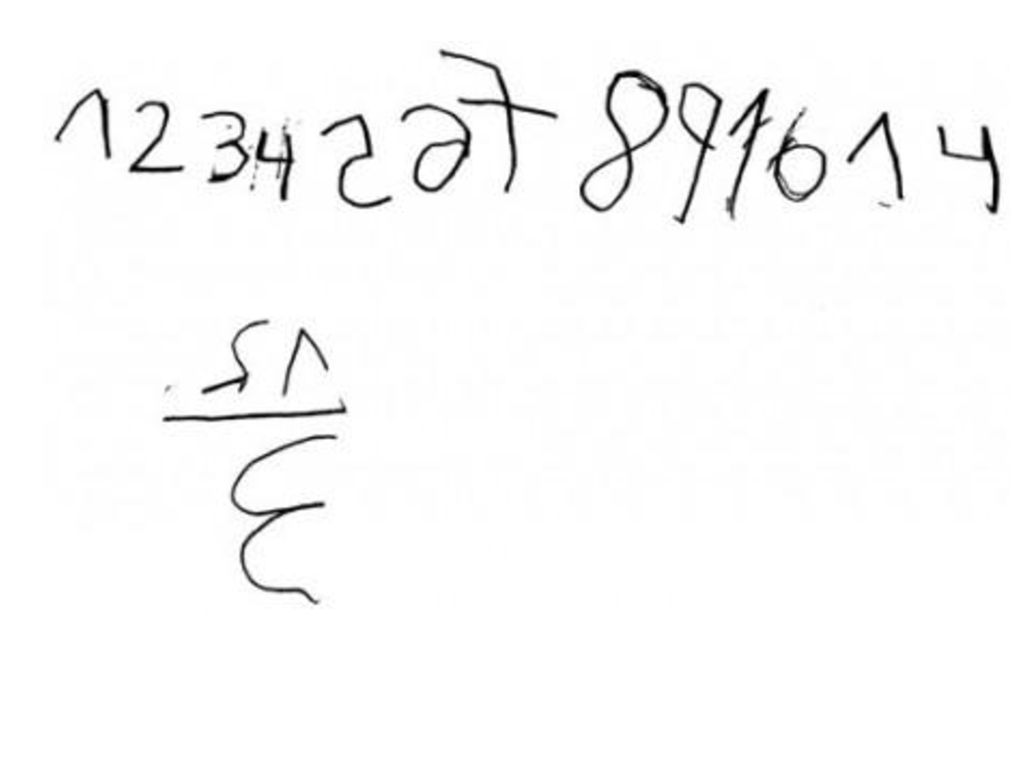 1234567891614
51
3